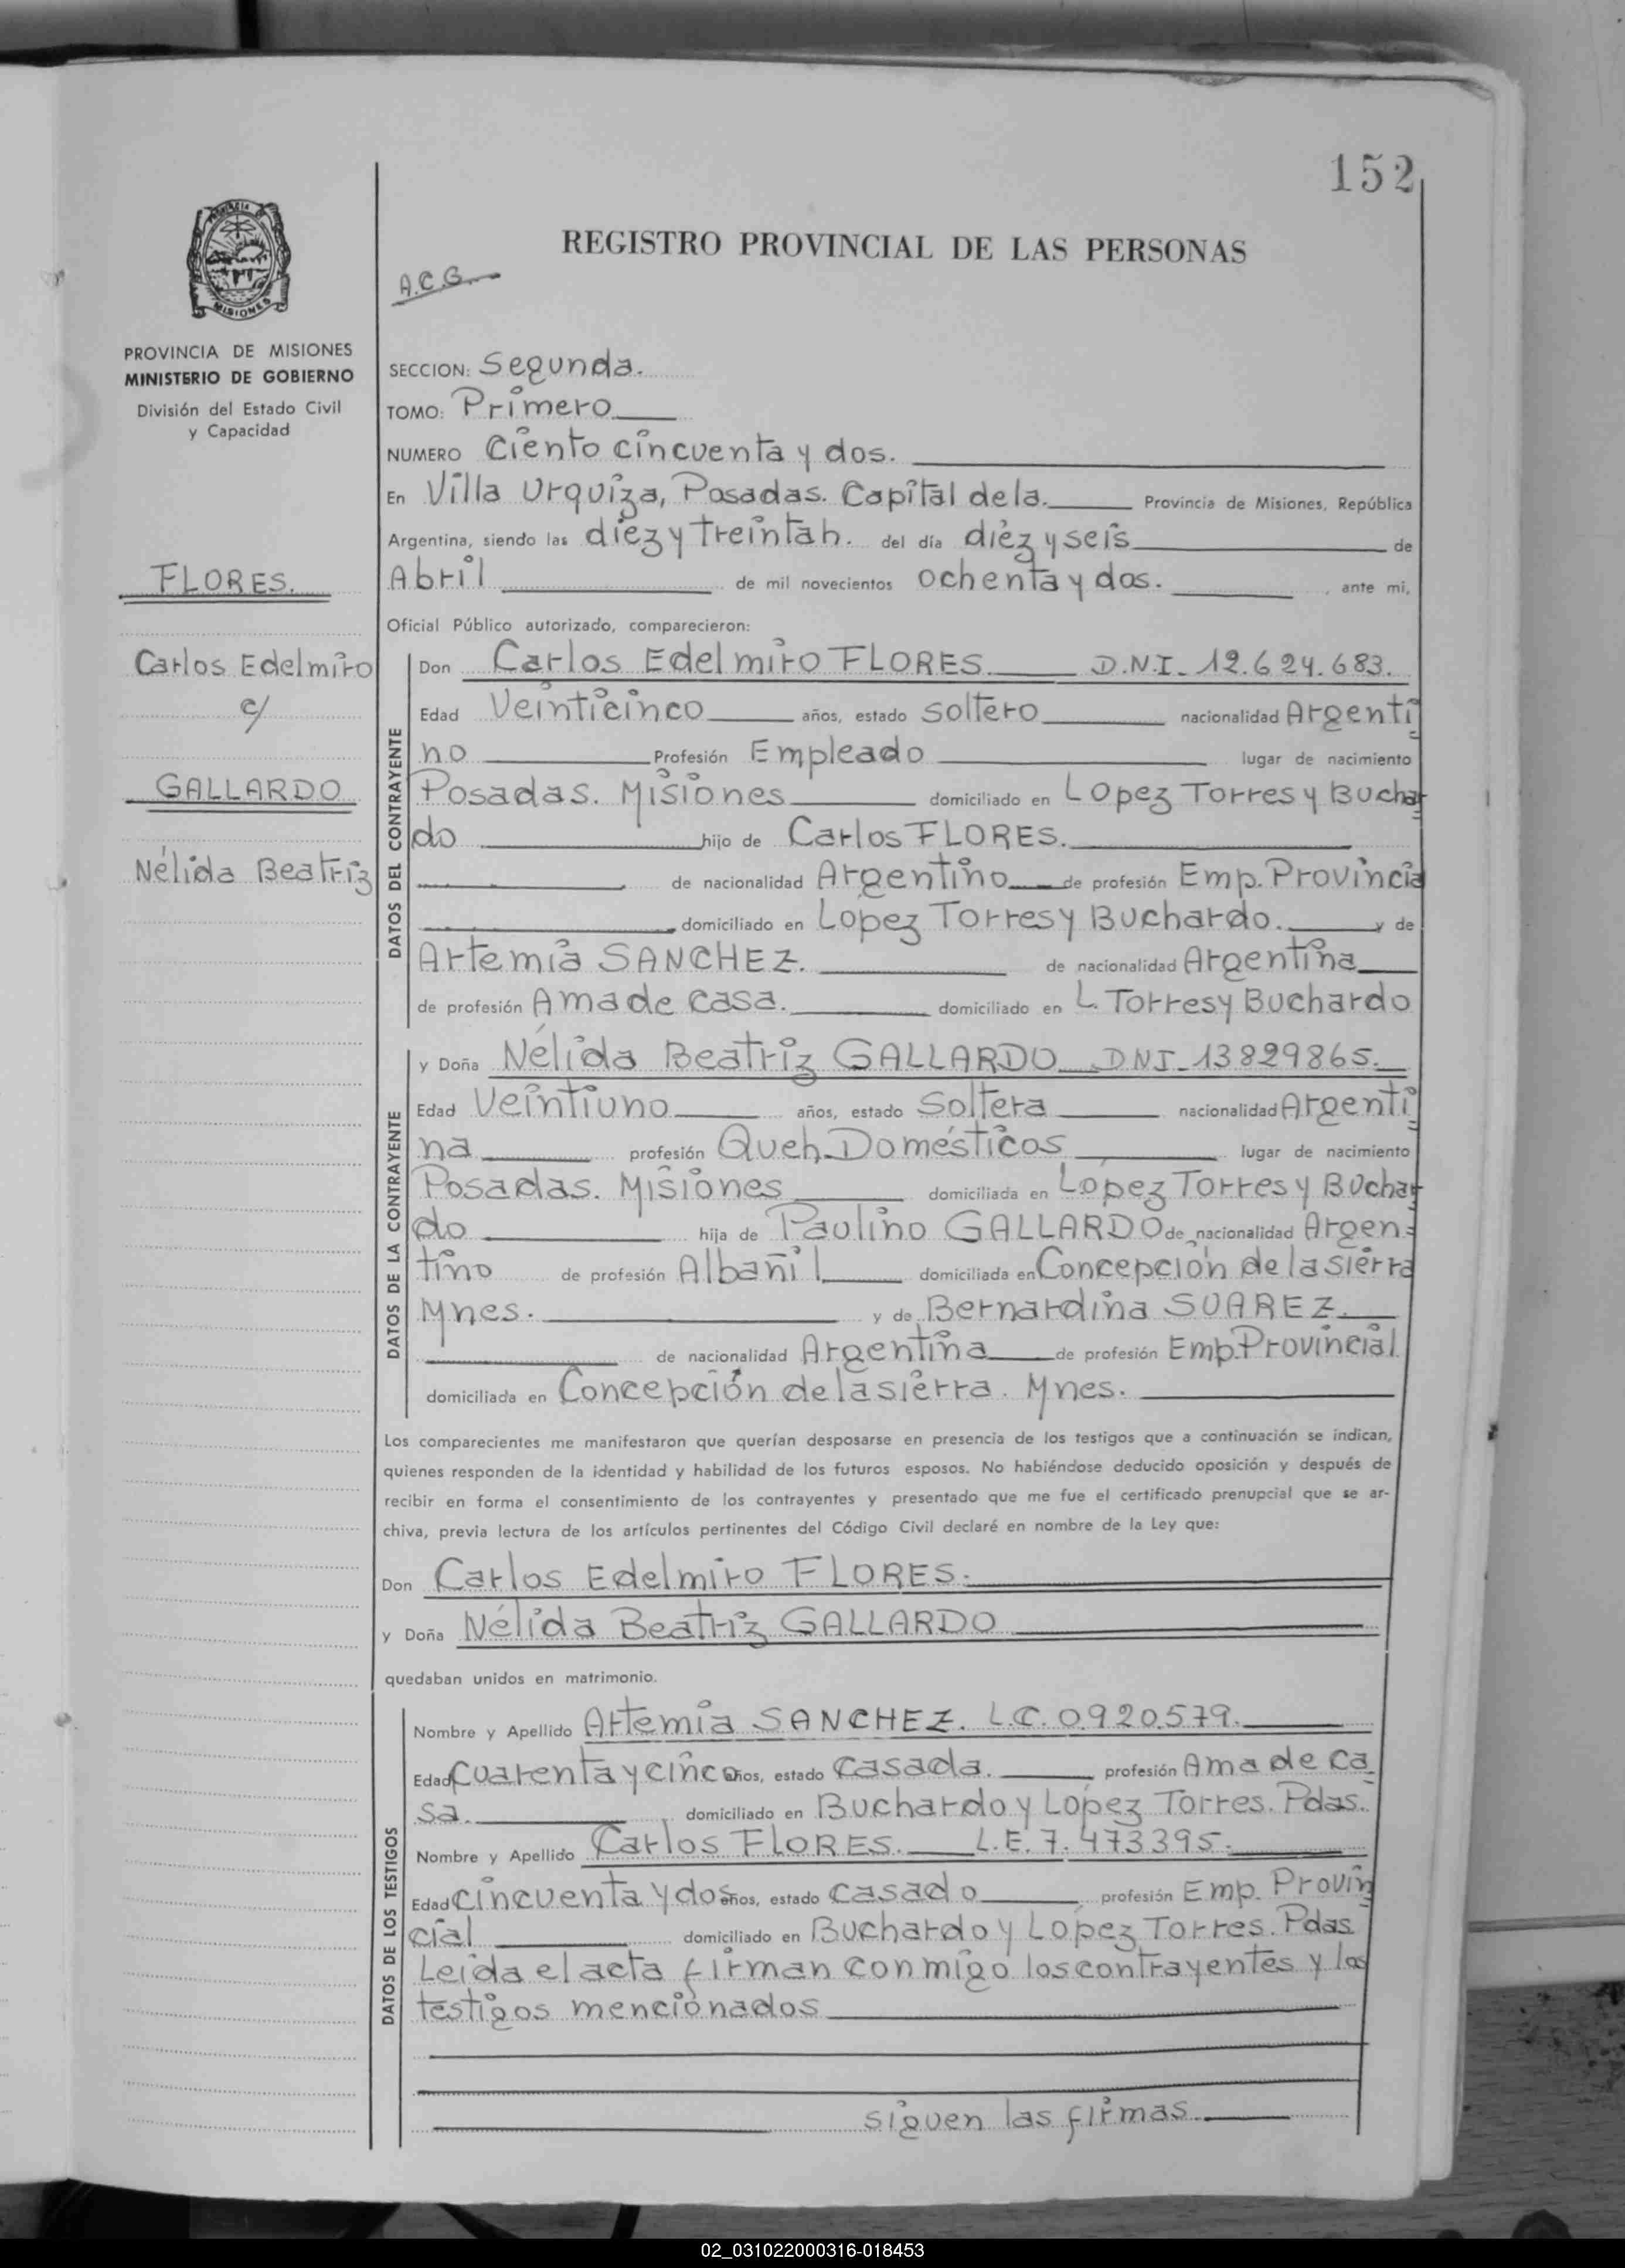 152
REGISTRO PROVINCIAL DE LAS PERSONAS
A.C.G.
MISIONES
PROVINCIA DE MISIONES
MINISTERIO DE GOBIERNO
División del Estado Civil
y Capacidad
FLORES.
Carlos Edelmiro
c/
GALLARDO
Nélida Beatriz
SECCION: Segunda.
TOMO: Primero
NUMERO Ciento cincuenta y dos.
En Villa Urquiza, Posadas. Capital de la. Provincia de Misiones, República
Argentina, siendo las diez y treinta h. del día diez y seis de
Abril de mil novecientos ochenta y dos. , ante mi,
Oficial Público autorizado, comparecieron:
DATOS DEL CONTRAYENTE
Don Carlos Edelmiro FLORES. D.N.I. 12.624.683.
Edad Veinticinco años, estado soltero nacionalidad Argenti
no Profesión Empleado lugar de nacimiento
Posadas. Misiones domiciliado en Lopez Torres y Buchar
do hijo de Carlos FLORES.
de nacionalidad Argentino de profesión Emp. Provincia
domiciliado en López Torres y Buchardo. y de
Artemia SANCHEZ. de nacionalidad Argentina
de profesión Ama de casa. domiciliado en L. Torres y Buchardo
DATOS DE LA CONTRAYENTE
y Doña Nélida Beatriz GALLARDO DNI-13829865.
Edad Veintiuno años, estado Soltera nacionalidad Argenti
na profesión Queh. Domésticos lugar de nacimiento
Posadas. Misiones domiciliada en López Torres y Buchar
do hija de Paulino GALLARDO de nacionalidad Argen=
tino de profesión Albañil domiciliada en Concepción de la sierra
Mnes. y de Bernardina SUAREZ.
de nacionalidad Argentina de profesión Emp.Provincial
domiciliada en Concepción de la sierra. Mnes.
Los comparecientes me manifestaron que querían desposarse en presencia de los testigos que a continuación se indican,
quienes responden de la identidad y habilidad de los futuros esposos. No habiéndose deducido oposición y después de
recibir en forma el consentimiento de los contrayentes y presentado que me fue el certificado prenupcial que se ar-
chiva, previa lectura de los artículos pertinentes del Código Civil declaré en nombre de la Ley que:
Don Carlos Edelmiro FLORES.
y Doña Nélida Beatriz GALLARDO
quedaban unidos en matrimonio.
DATOS DE LOS TESTIGOS
Nombre y Apellido Artemia SANCHEZ. L.C. 0.920.579.
Edad Cuarenta y cinco años, estado casada. profesión Ama de ca
sa. domiciliado en Buchardo y López Torres. Pdas.
Nombre y Apellido Carlos FLORES. L.E. 7.473395.
Edad Cincuenta y dos años, estado casado profesión Emp. Provin
cial domiciliado en Buchardo y López Torres. Pdas.
Leida el acta firman conmigo los contrayentes y los
testigos mencionados
siguen las firmas.
02_031022000316-018453